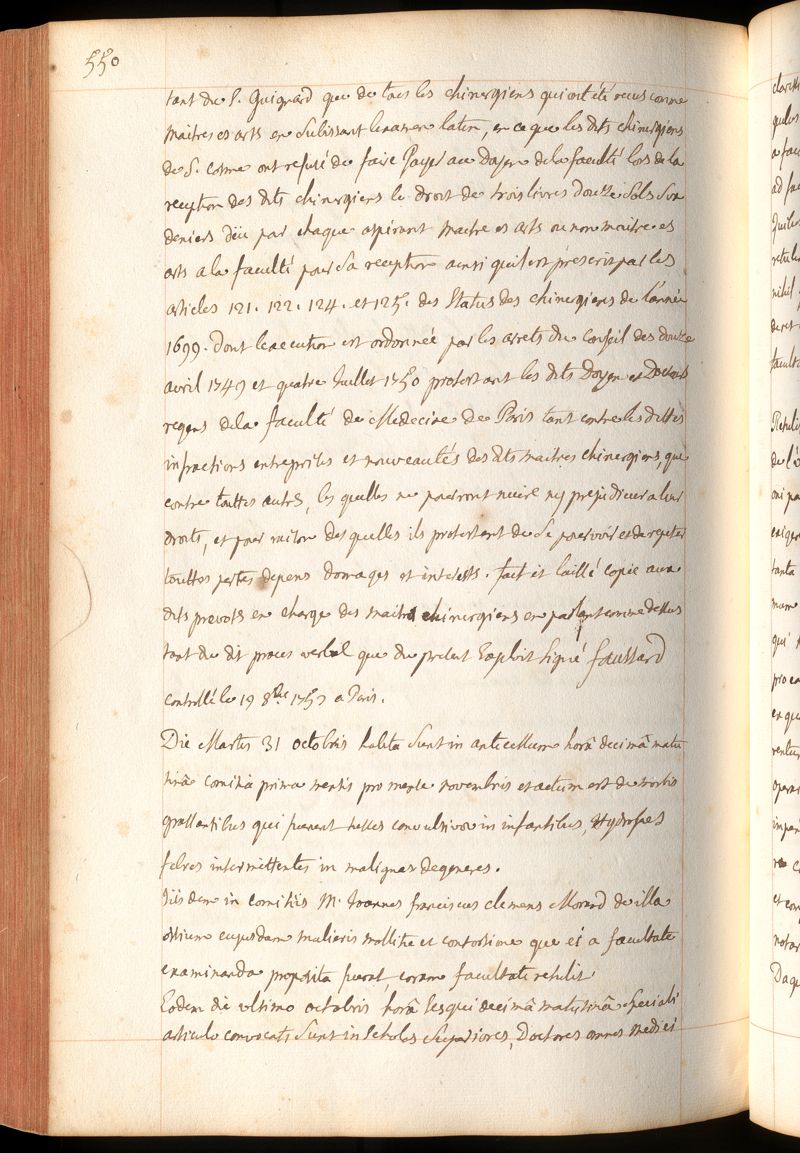 550
tant du S. Guignard que de tous les chirurgiens qui ont été reçus comme
maitres es arts en subissant l'examen latin, en ce que les dits chirurgiens
de S. cosme ont refusé de faire Payer au Doyen de la faculté lors de la
reception des dits chirurgiens le droit de trois livres douze sols six
deniers dûe par chaque aspirant maitre es arts ou non maitre es
arts a la faculté pour sa reception ainsi quil est prescrit par les
articles 121. 122. 124. et 125. des Status des chirurgiens de l'année
1699. dont l'execution est ordonnée par les arrets du conseil des douze
avril 1749 et quatre Juillet 1750 protestant les dits Doyen et Docteurs
regens de la faculté de Medecine de Paris tant contre les dittes
infractions entreprises et nouveautés des dits maitres chirurgiens, que
contre touttes autres, les quelles ne pourront nuire ny prejudicier a leur
droits, et pour raison des quelles ils protestent de se pourvoir et de repeter
touttes pertes depens domages et interests. fait et laissé copie aux
dits prevots en charge des maitres chirurgiens en parlant comme dessus
tant du dit proces verbal que du present Exploit signé faussard
controllé le 19 8bre 1757 a Paris.
Die Martis 31 octobris habita sunt in anti cessum horâ decimâ matu
tinâ comitia prima mensis pro mense novembris et actum est de morbis
grassantibus qui fuerunt tusses convulsivæ in infantibus, Hydropes
febres intermittentes in malignas degeneres.
Iisdem in comitiis M. Joannes franciscus clemens Morand de illa
ossium cujusdam mulieris mollitie et contorsione que ei a facultate
examinanda proposita fuerat, coram facultate retulit
Eodem die ultimo octobris horâ sesqui decimâ matutinâ speciali
articulo convocati sunt in scholas superiores, Doctores omnes medici